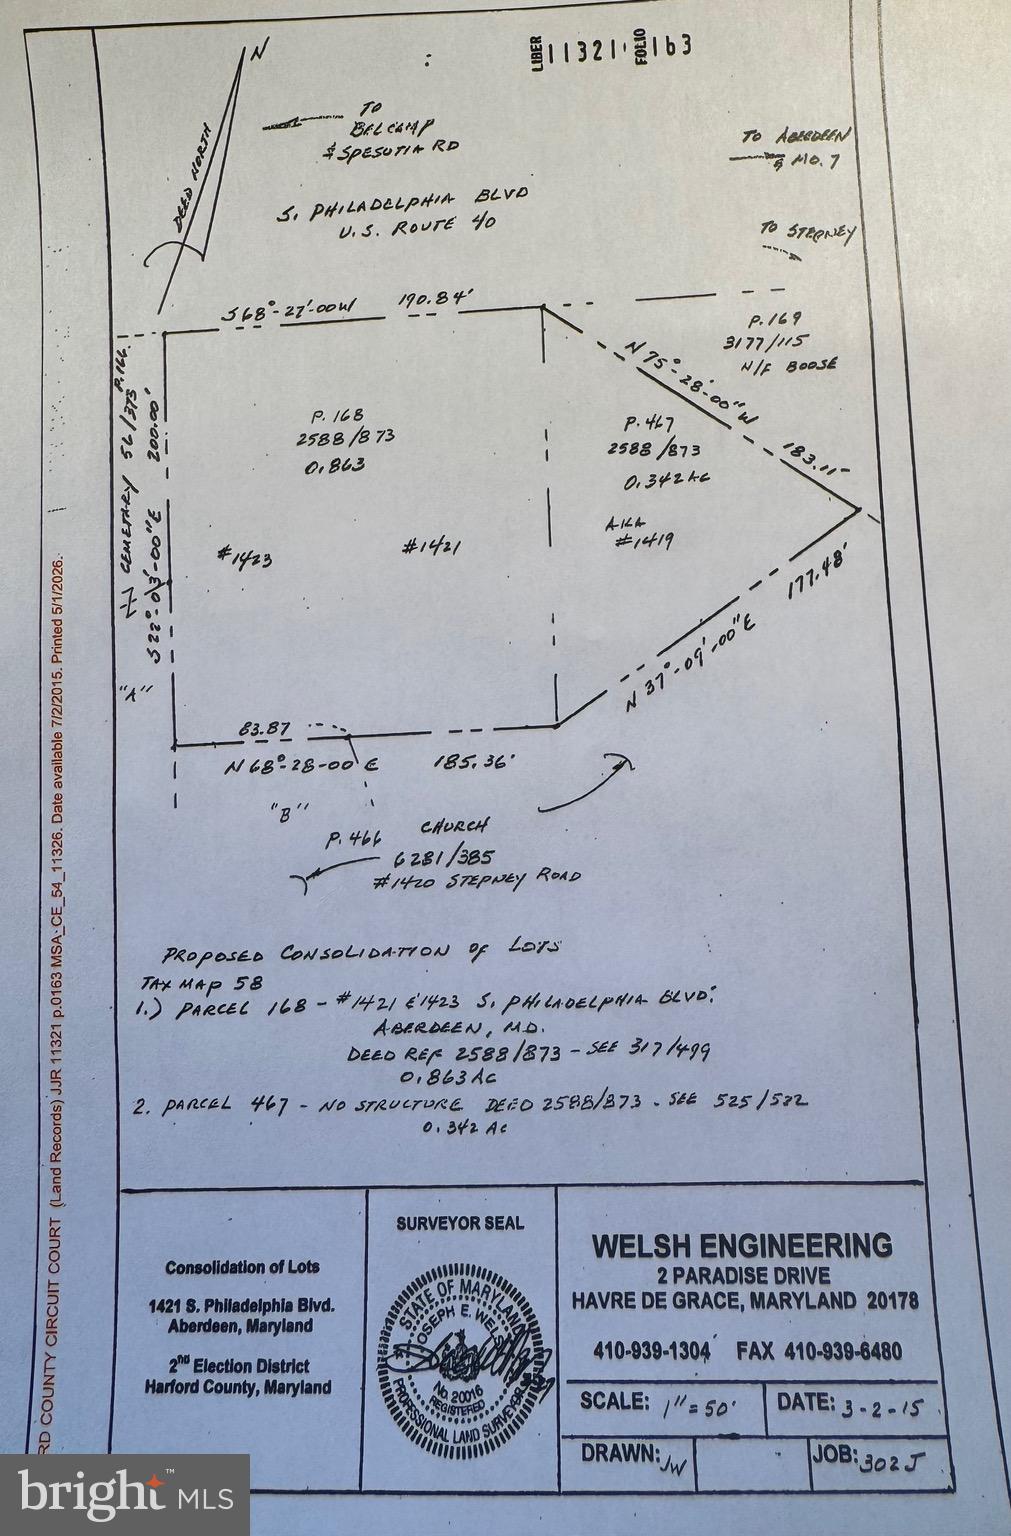 LIBER 11321 FOLIO 163
N
DEED NORTH
TO
BELCAMP
& SPESUTIA RD
TO ABERDEEN
& MO. 7
S. PHILADELPHIA BLVD
U.S. ROUTE 40
TO STEPNEY
S68°-27'-00W 190.84'
P. 169
3177/115
N/F BOOSE
N 75°-28'-00" W 183.11
CEMETARY 56/373 P.166
S22°-03'-00"E 200.00'
P. 168
2588/873
0.863
P. 467
2588/873
0.342 AC
AKA
#1419
#1423
#1421
177.48'
N 37°-09'-00" E
"A"
83.87
N 68°-28-00 E 185.36'
"B"
P. 466 CHURCH
6281/385
#1420 STEPNEY ROAD
PROPOSED CONSOLIDATION of LOTS
TAX MAP 58
1.) PARCEL 168 - #1421 & 1423 S. PHILADELPHIA BLVD.
ABERDEEN, MD.
DEED REF 2588/873 - SEE 317/499
0.863 AC
2. PARCEL 467 - NO STRUCTURE DEED 2588/873 - SEE 525/522
0.342 AC
RD COUNTY CIRCUIT COURT (Land Records) JJR 11321 p.0163 MSA_CE_54_11326. Date available 7/2/2015. Printed 5/1/2026.
Consolidation of Lots
1421 S. Philadelphia Blvd.
Aberdeen, Maryland
2nd Election District
Harford County, Maryland
SURVEYOR SEAL
STATE OF MARYLAND
JOSEPH E. WELSH
No. 20016
REGISTERED
PROFESSIONAL LAND SURVEYOR
WELSH ENGINEERING
2 PARADISE DRIVE
HAVRE DE GRACE, MARYLAND 20178
410-939-1304 FAX 410-939-6480
SCALE: 1"=50'
DATE: 3-2-15
DRAWN: JW
JOB: 302J
bright™ MLS